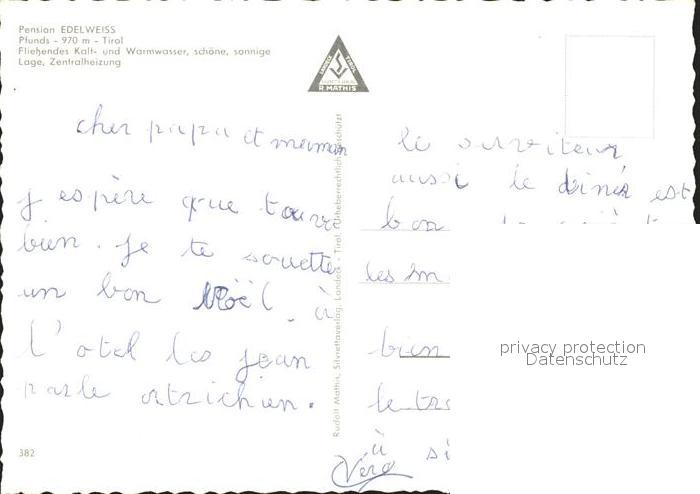 Pension EDELWEISS
Pfunds - 970 m - Tirol
Fließendes Kalt- und Warmwasser, schöne, sonnige
Lage, Zentralheizung
R. MATHIS
cher papa et maman
j espère que tou va
bien. je te souette
un bon Noël. à
l'otel les jean
parle otrichien.
382
Rudolf Mathis, Silvrettaverlag, Landeck - Tirol, Urheberrechtlich geschützt
le serviteur
aussi le diné est
bon
les m
bien
le tr
à si
Véro
privacy protection
Datenschutz